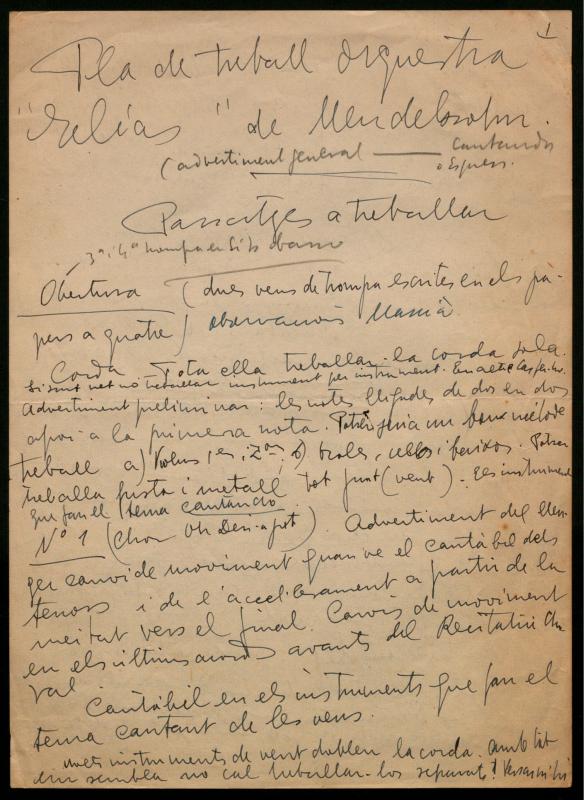 1
Pla de treball orquestra
"Elías" de Mendelssohn.
(advertiment general — Cantando
o Espress.
Passatges a treballar
3ª i 4ª trompa en Si b
Obertura (dues veus de trompa escrites en els pa-
pers a quatre) observacions Massià
Corda. Tota ella treballar la corda sola.
Si surt net no treballar instrument per instrument. En
Advertiment preliminar: les notes lligades de dos en dos
apoi a la primera nota. Potser seria un bon mètode
treball a) Violins 1ers i 2ons, b) violes, cellos i baixos. Potser
treballar fusta i metall tot junt (vent). Els instruments
que fan el tema cantando
Nº 1 (Chor ). Advertiment del lleu-
ger canvi de moviment quan ve el cantàbil dels
tenors i de l'accelerament a partir de la
meitat vers el final. Canvis de moviment
en els últims acords avants del Recitatiu Cho-
ral
Cantàbil en els instruments que fan el
tema cantant de les veus.
instruments de vent doblen la corda. Amb tot
sembla no cal treballar-los separats!